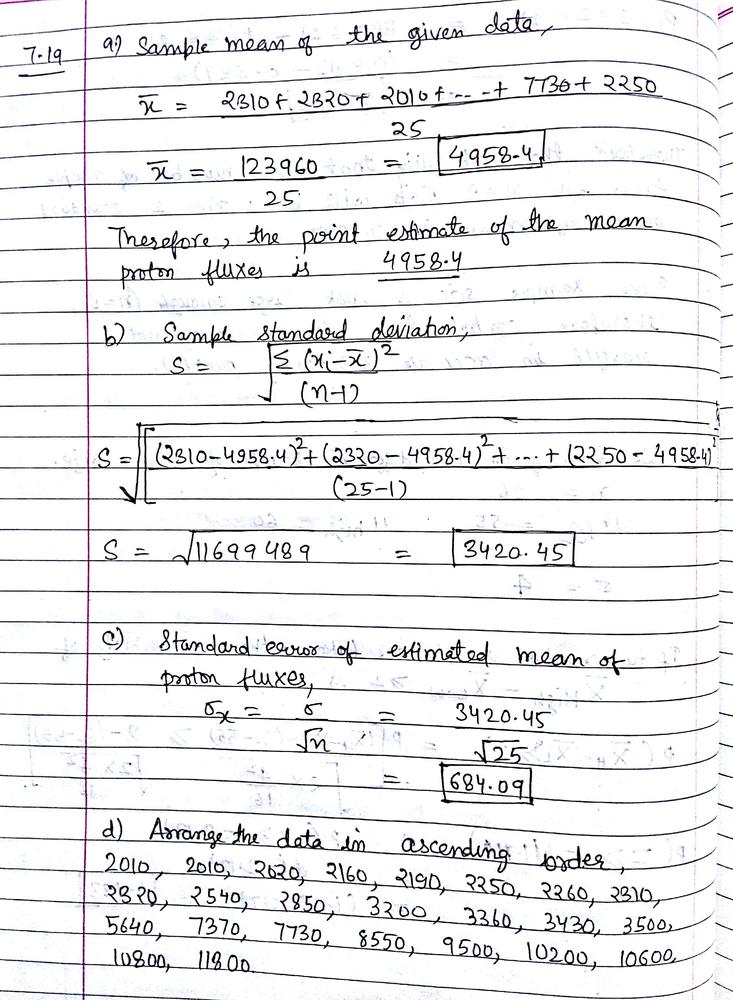 7.19
a) Sample mean of the given data,
x̄ = 2310 + 2320 + 2010 + --- + 7730 + 2250
25
x̄ = 123960 = 4958.4
25
Therefore, the point estimate of the mean
proton fluxes is 4958.4
b) Sample standard deviation,
S = √ Σ (xi - x̄)²
(n-1)
S = √ (2310-4958.4)² + (2320-4958.4)² + ... + (2250-4958.4)²
(25-1)
S = √11699489 = 3420.45
c) Standard error of estimated mean of
proton fluxes,
σx = σ = 3420.45
√n √25
= 684.09
d) Arrange the data in ascending order,
2010, 2010, 2020, 2160, 2190, 2250, 2260, 2310,
2320, 2540, 2850, 3200, 3360, 3430, 3500,
5640, 7370, 7730, 8550, 9500, 10200, 10600,
10800, 11800.